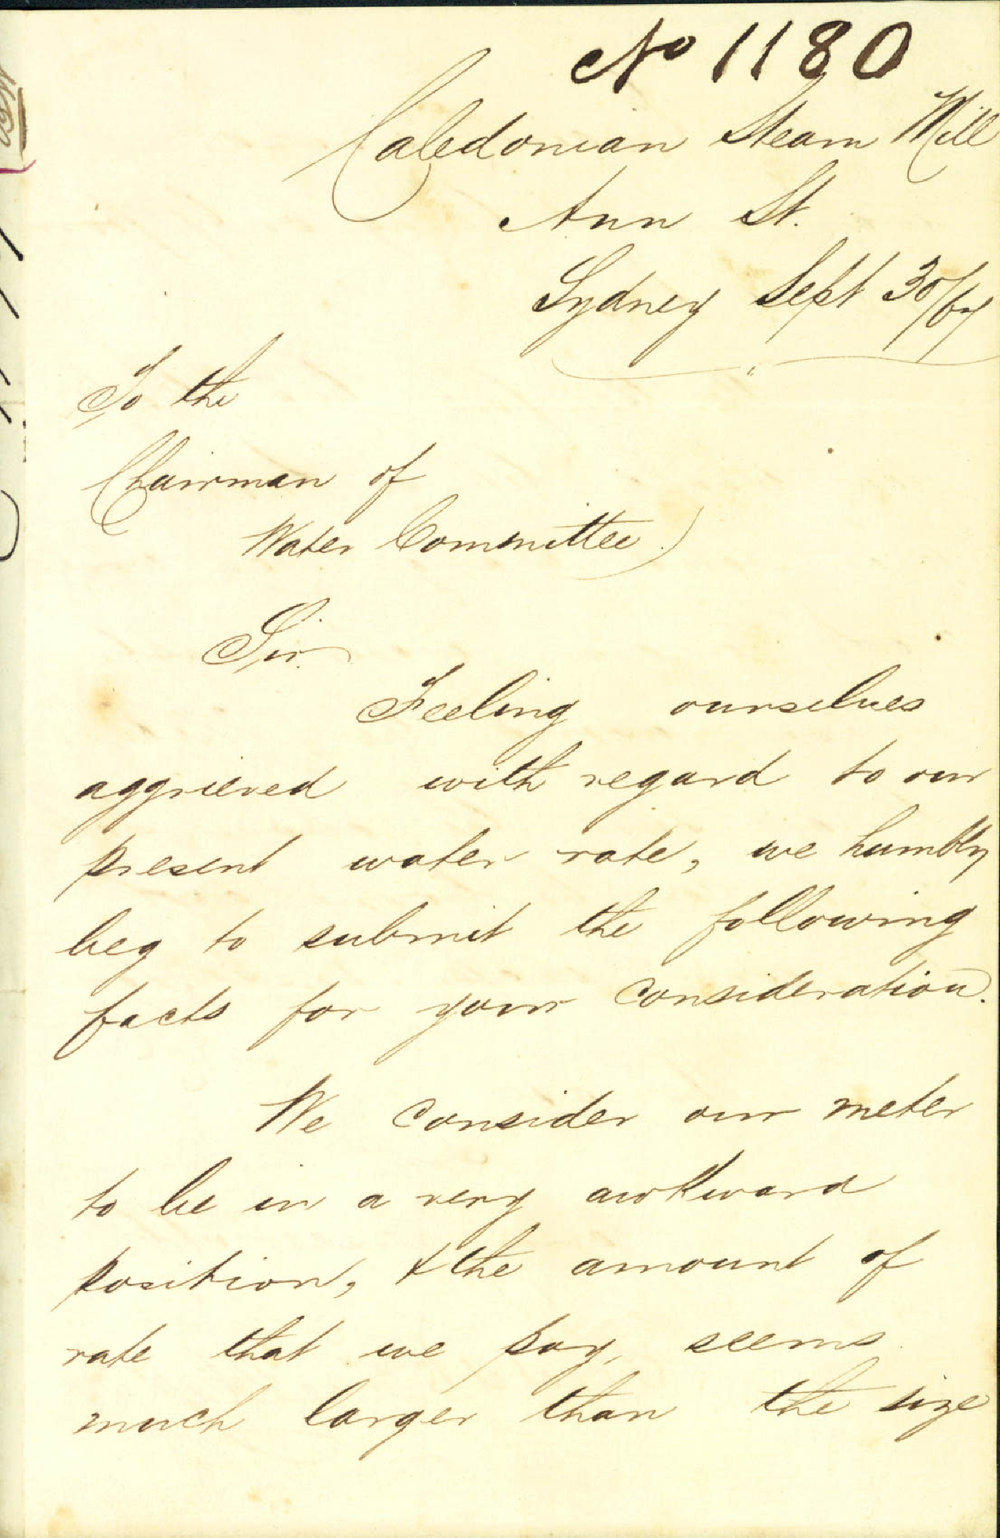 No 1180
Caledonian Steam Mill
Ann St.
Sydney Sept 30/67
To the
Chairman of
Water Committee.
Sir.
Feeling ourselves
aggrieved with regard to our
present water rate, we humbly
beg to submit the following
facts for your consideration.
We consider our meter
to be in a very awkward
position, & the amount of
rate that we pay, seems
much larger than the size